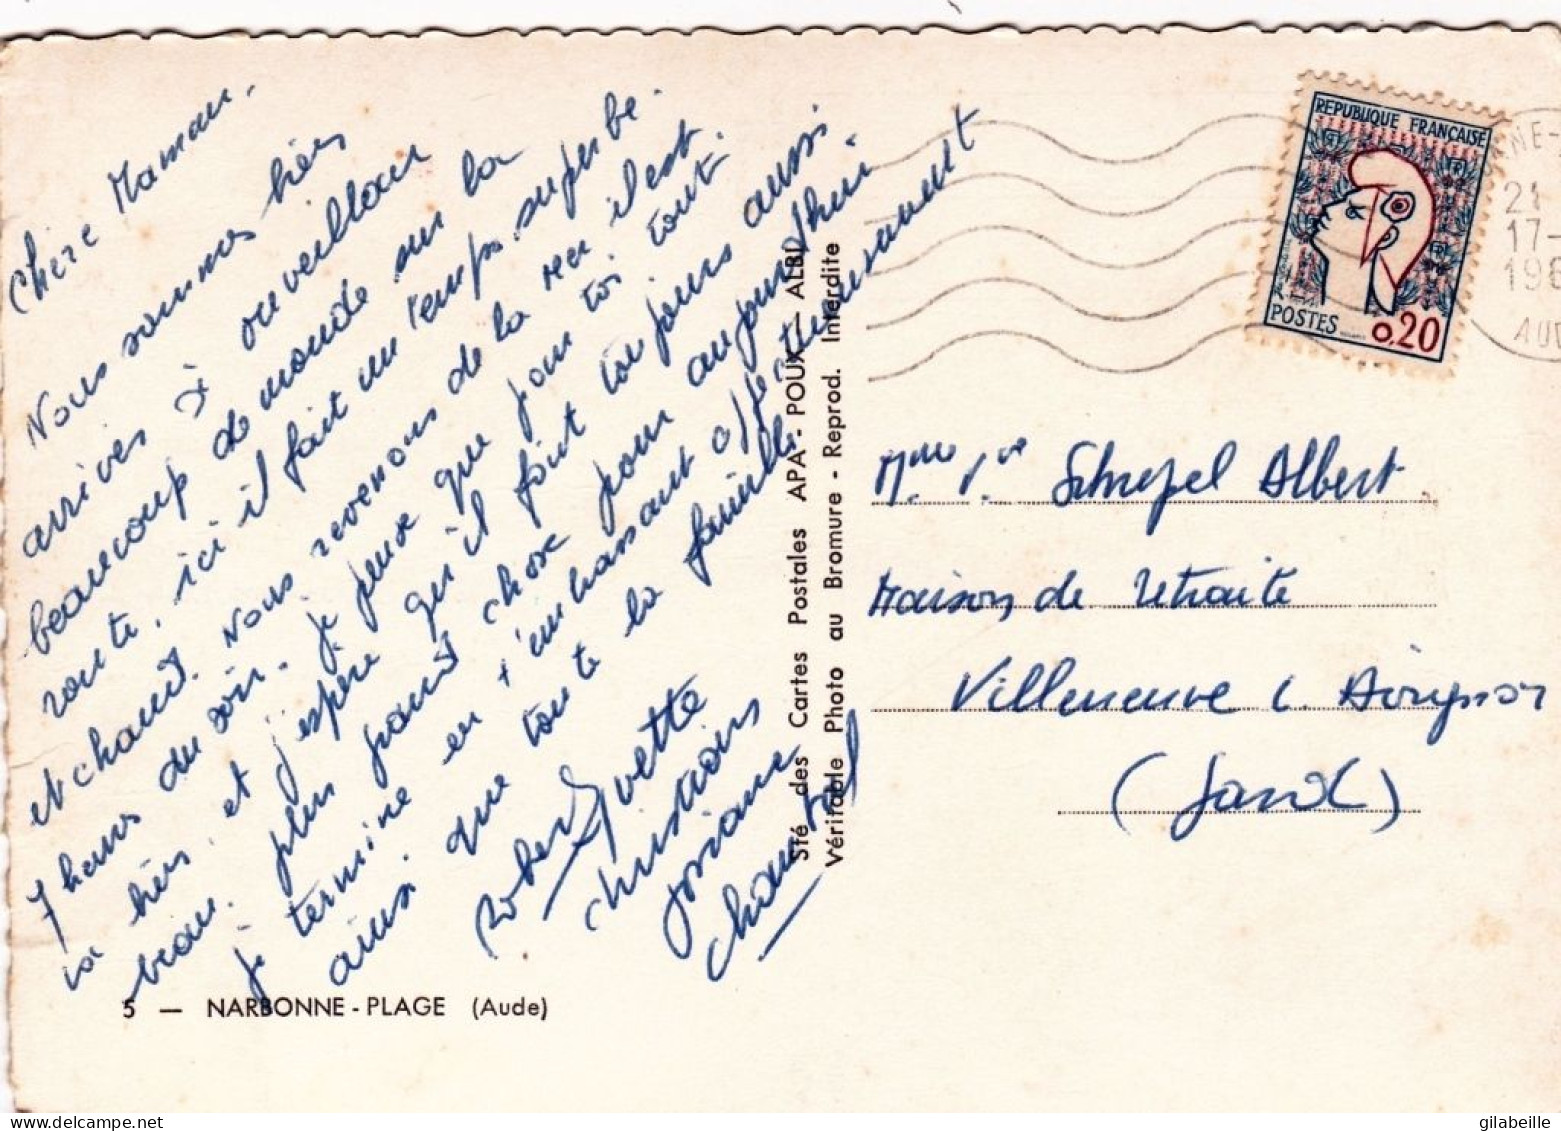 Chère Maman.
Nous sommes bien
arrivés à ouveillan
beaucoup de monde sur la
route, ici il fait un temps superbe
et chaud. Nous revenons de la mer il est
7 heures du soir. Je pense que pour toi tout
va bien, et j'espère qu'il fait toujours aussi
beau. plus grand chose pour aujourd'hui
je termine en t'embrassant affectueusement
ainsi que toute la famille
Robert Yvette
christian
Josiane
chantal
5 — NARBONNE-PLAGE (Aude)
Sté des Cartes Postales APA-POUX - ALBI
Véritable Photo au Bromure - Reprod. Interdite
REPUBLIQUE FRANÇAISE
POSTES 0,20
21
17-
196
AUD
Mme Vve Schrepel Albert
Maison de retraite
Villeneuve l. Avignon
(Gard)
gilabeille